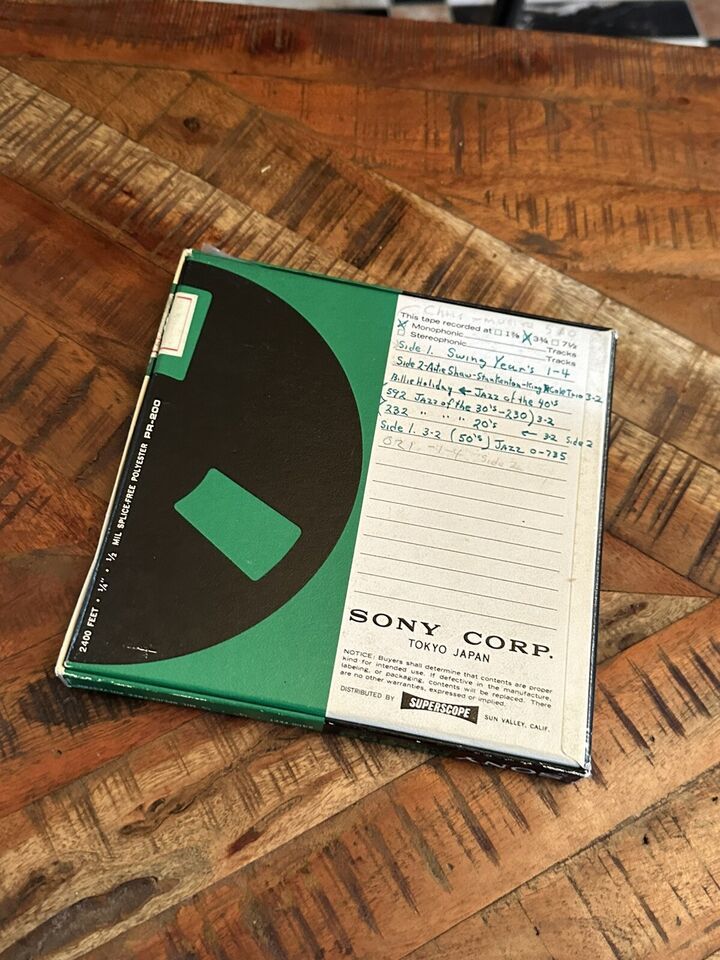 This tape recorded at □ 1⅞ X 3¾ □ 7½
X Monophonic Tracks
□ Stereophonic Tracks
Side 1. Swing Year's 1-4
Side 2-Artie Shaw-Stan Kenton-King Cole Trio 3-2
Billie Holiday ← Jazz of the 40's
(592 Jazz of the 30's-230) 3-2
(232 " " " 20's ← 3-2 Side 2
Side 1. 3-2 (50's) Jazz 0-735
Side 2
SONY CORP.
TOKYO JAPAN
NOTICE: Buyers shall determine that contents are proper
kind for intended use. If defective in the manufacture,
labeling, or packaging, contents will be replaced. There
are no other warranties, expressed or implied.
DISTRIBUTED BY SUPERSCOPE SUN VALLEY, CALIF.
2400 FEET • ¼" • ½ MIL SPLICE-FREE POLYESTER PR-200
SONY